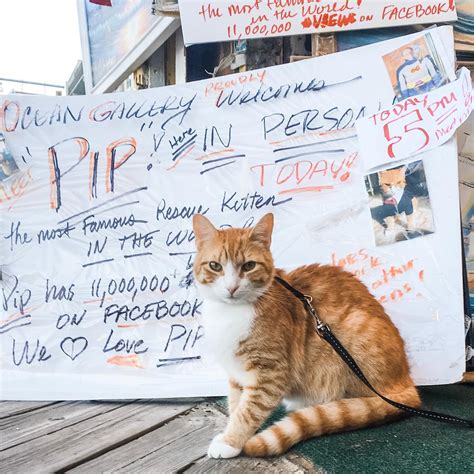 the most famous
in the World!
11,000,000 VIEWS on FACEBOOK!
OCEAN GALLERY PROUDLY Welcomes
"PIP"! Here IN PERSON
TODAY!
TODAY
5PM
the most Famous Rescue Kitten
IN THE
Pip has 11,000,000+
ON FACEBOOK
We ♡ Love PIP